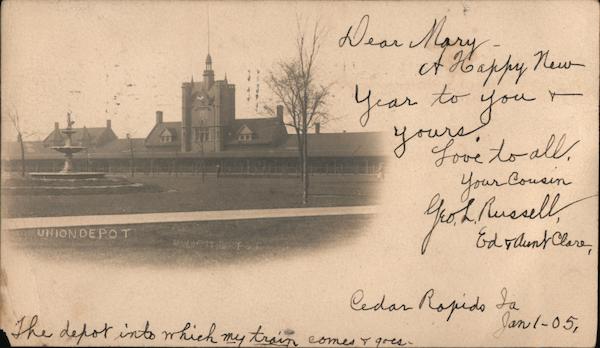 Dear Mary -
A Happy New
Year to you +
yours.
Love to all,
Your Cousin
Geo. L. Russell,
Ed & Aunt Clare,
UNION DEPOT
Cedar Rapids Ia
Jan 1-05,
The depot into which my train comes & goes.